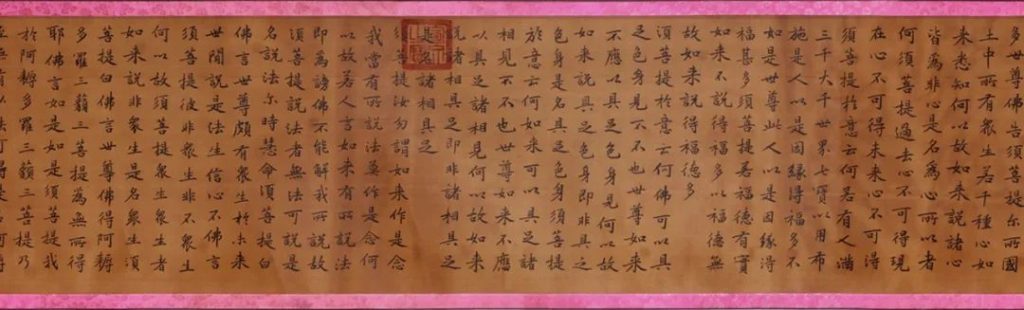 多世尊佛告須菩提尔所國
土中所有衆生若干種心如
来悉知何以故如来說諸心
皆為非心是名為心所以者
何須菩提過去心不可得現
在心不可得未来心不可得
須菩提扵意云何若有人滿
三千大千世界七寳以用布
施是人以是因緣得福多不
如是世尊此人以是因緣得
福甚多須菩提若福德有實
如来不說得福德多以福德無
故如来說得福德多
須菩提扵意云何佛可以具
足色身見不不也世尊如来
不應以具足色身見何以故
如来說具足色身即非具足
色身是名具足色身須菩提
扵意云何如来可以具足諸
相見不不也世尊如来不應
以具足諸相見何以故如来
說諸相具足即非諸相具足
是名諸相具足
須菩提汝勿謂如来作是念
我當有所說法莫作是念何
以故若人言如来有所說法
即為謗佛不能解我所說故
須菩提說法者無法可說是
名說法尔時慧命須菩提白
佛言世尊頗有衆生扵未来
世聞說是法生信心不佛言
須菩提彼非衆生非不衆生
何以故須菩提衆生衆生者
如来說非衆生是名衆生須
菩提白佛言世尊佛得阿耨
多羅三藐三菩提為無所得
耶佛言如是如是須菩提我
於阿耨多羅三藐三菩提乃
至無有少法可得是名